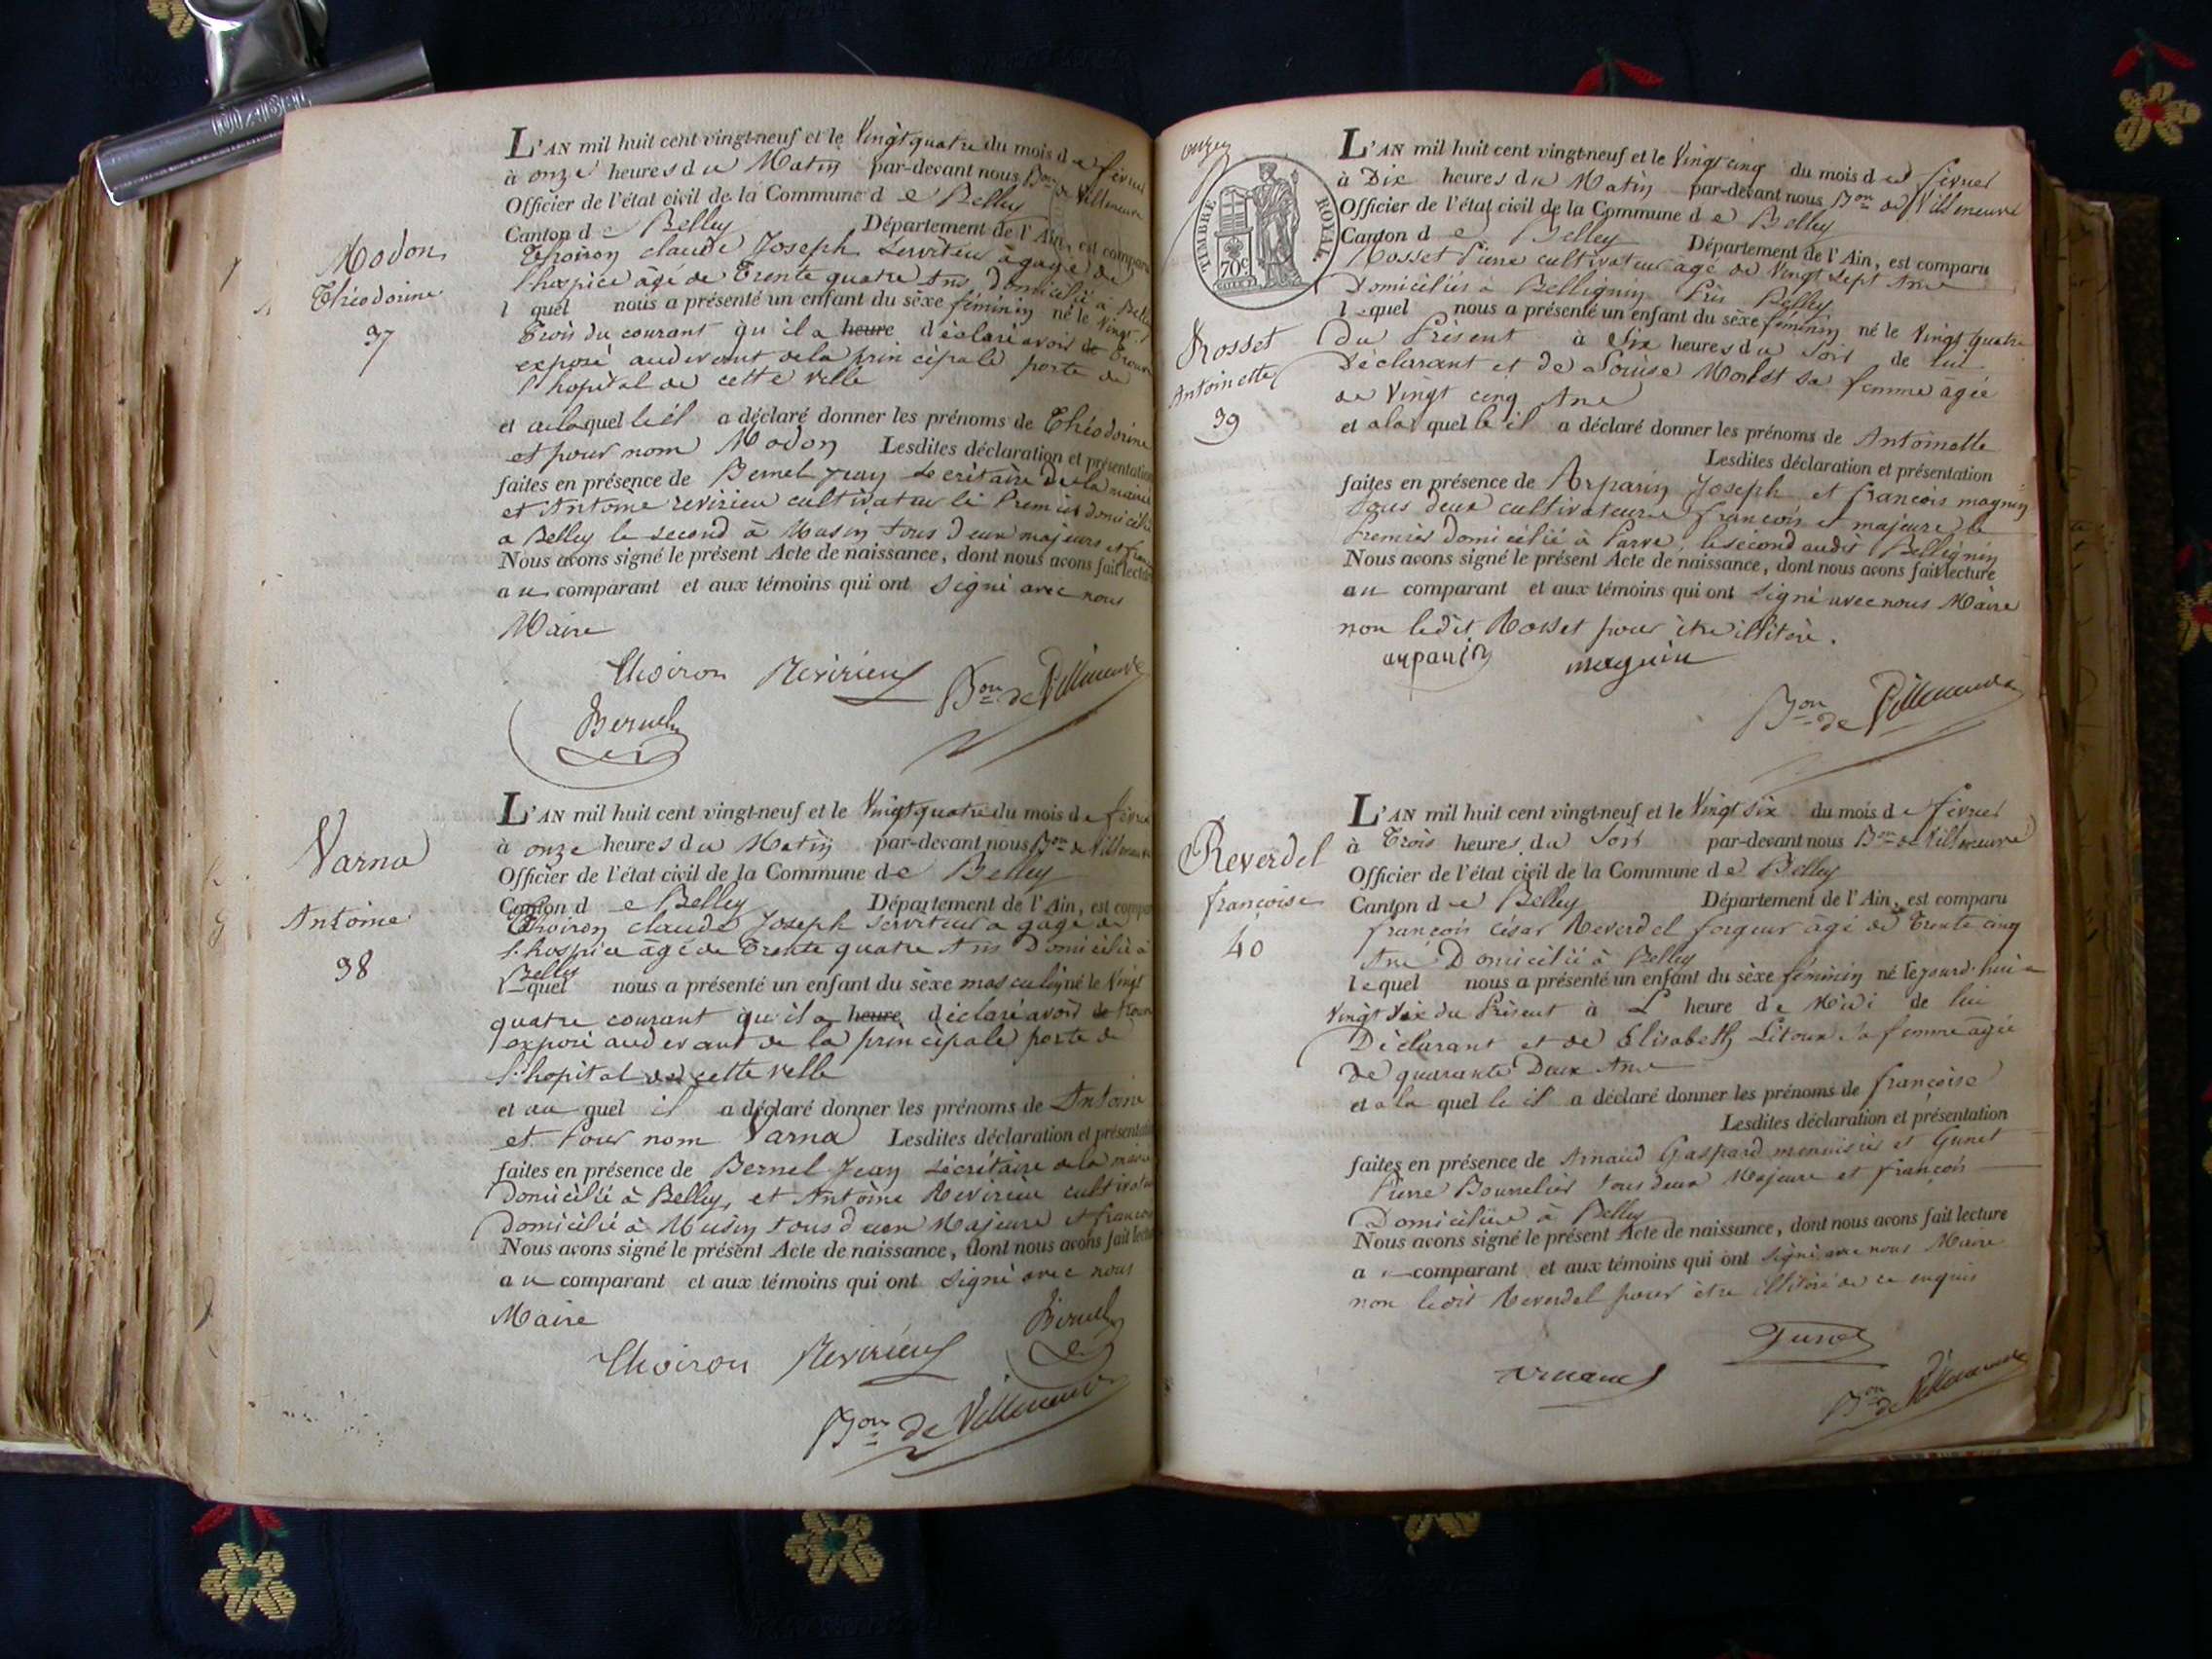 Modon
Théodorine
37
L'AN mil huit cent vingt-neuf et le Vingt quatre du mois de février
à onze heures du Matin par-devant nous Bon de Villeneuve
Officier de l'état civil de la Commune de Belley
Canton de Belley Département de l'Ain, est comparu
Thoiron claude Joseph Serviteur à gage de
l'hospice âgé de Trente quatre Ans Domicilié à Belley
l quel nous a présenté un enfant du sèxe féminin né le Vingt
Trois du courant qu'il a heure déclaré avoir de Trouvé
exposé audevant de la principale porte de
l'hopital de cette ville
et a laquel le il a déclaré donner les prénoms de Théodorine
et pour nom Modon Lesdites déclaration et présentation
faites en présence de Bernel Jean Secrétaire de la mairie
et Antoine revirieu cultivateur le Premier domicilié
a Belley le second à Musin tous deux majeurs et français
Nous avons signé le présent Acte de naissance, dont nous avons fait lecture
au comparant et aux témoins qui ont Signé avec nous
Maire
Thoiron Revirieu Bon de Villeneuve
Bernel
Varna
Antoine
38
L'AN mil huit cent vingt-neuf et le Vingt quatre du mois de février
à onze heures du Matin par-devant nous Bon de Villeneuve
Officier de l'état civil de la Commune de Belley
Canton de Belley Département de l'Ain, est comparu
Thoiron claude Joseph Serviteur a gage de
l'hospice âgé de Trente quatre Ans Domicilié à
Belley
lequel nous a présenté un enfant du sèxe masculin né le Vingt
quatre courant qu'il a heure déclaré avoir de trouvé
exposé audevant de la principale porte de
l'hopital de cette ville
et au quel il a déclaré donner les prénoms de Antoine
et Pour nom Varna Lesdites déclaration et présentation
faites en présence de Bernel Jean Secrétaire de la mairie
domicilié à Belley, et Antoine Revirieu cultivateur
domicilié à Musin tous deux Majeurs et francois
Nous avons signé le présent Acte de naissance, dont nous avons fait lecture
au comparant et aux témoins qui ont Signé avec nous
Maire
Thoiron Revirieu Bernel
Bon de Villeneuve
onzieu
TIMBRE ROYAL
70c
Rosset
Antoinette
39
L'AN mil huit cent vingt-neuf et le Vingt cinq du mois de février
à Dix heures du Matin par-devant nous Bon de Villeneuve
Officier de l'état civil de la Commune de Belley
Canton de Belley Département de l'Ain, est comparu
Rosset Pierre cultivateur âgé de Vingt Sept Ans
Domicilié à Bellignin Près Belley
lequel nous a présenté un enfant du sèxe féminin né le Vingt quatre
du Présent à Six heures du Soir de lui
Déclarant et de Louise Mollet Sa femme âgée
de Vingt cinq Ans
et a la quel le il a déclaré donner les prénoms de Antoinette
Lesdites déclaration et présentation
faites en présence de Arparin Joseph et francois magnin
Tous deux cultivateurs francois et majeurs le
Premier Domicilié à Parve, le second audit Bellignin
Nous avons signé le présent Acte de naissance, dont nous avons fait lecture
au comparant et aux témoins qui ont Signé avec nous Maire
non ledit Rosset pour être illitéré.
arparin magnin
Bon de Villeneuve
Reverdel
françoise
40
L'AN mil huit cent vingt-neuf et le Vingt six du mois de février
à Trois heures du Soir par-devant nous Bon de Villeneuve
Officier de l'état civil de la Commune de Belley
Canton de Belley Département de l'Ain, est comparu
françois césar Reverdel forgeur âgé de Trente cinq
Ans Domicilié à Belley
lequel nous a présenté un enfant du sèxe féminin né le jourd'hui
Vingt Six du Présent à L heure de Midi de lui
Déclarant et de Elisabeth Litoux Sa femme âgée
de quarante Deux Ans
et a la quel le il a déclaré donner les prénoms de françoise
Lesdites déclaration et présentation
faites en présence de Arnaud Gaspard menuisier et Gunet
Pierre Bourrelier tous deux Majeurs et françois
Domiciliés à Belley
Nous avons signé le présent Acte de naissance, dont nous avons fait lecture
au comparant et aux témoins qui ont Signé avec nous Maire
non ledit Reverdel pour être illitéré de ce enquis
Gunet
arnaud
Bon de Villeneuve